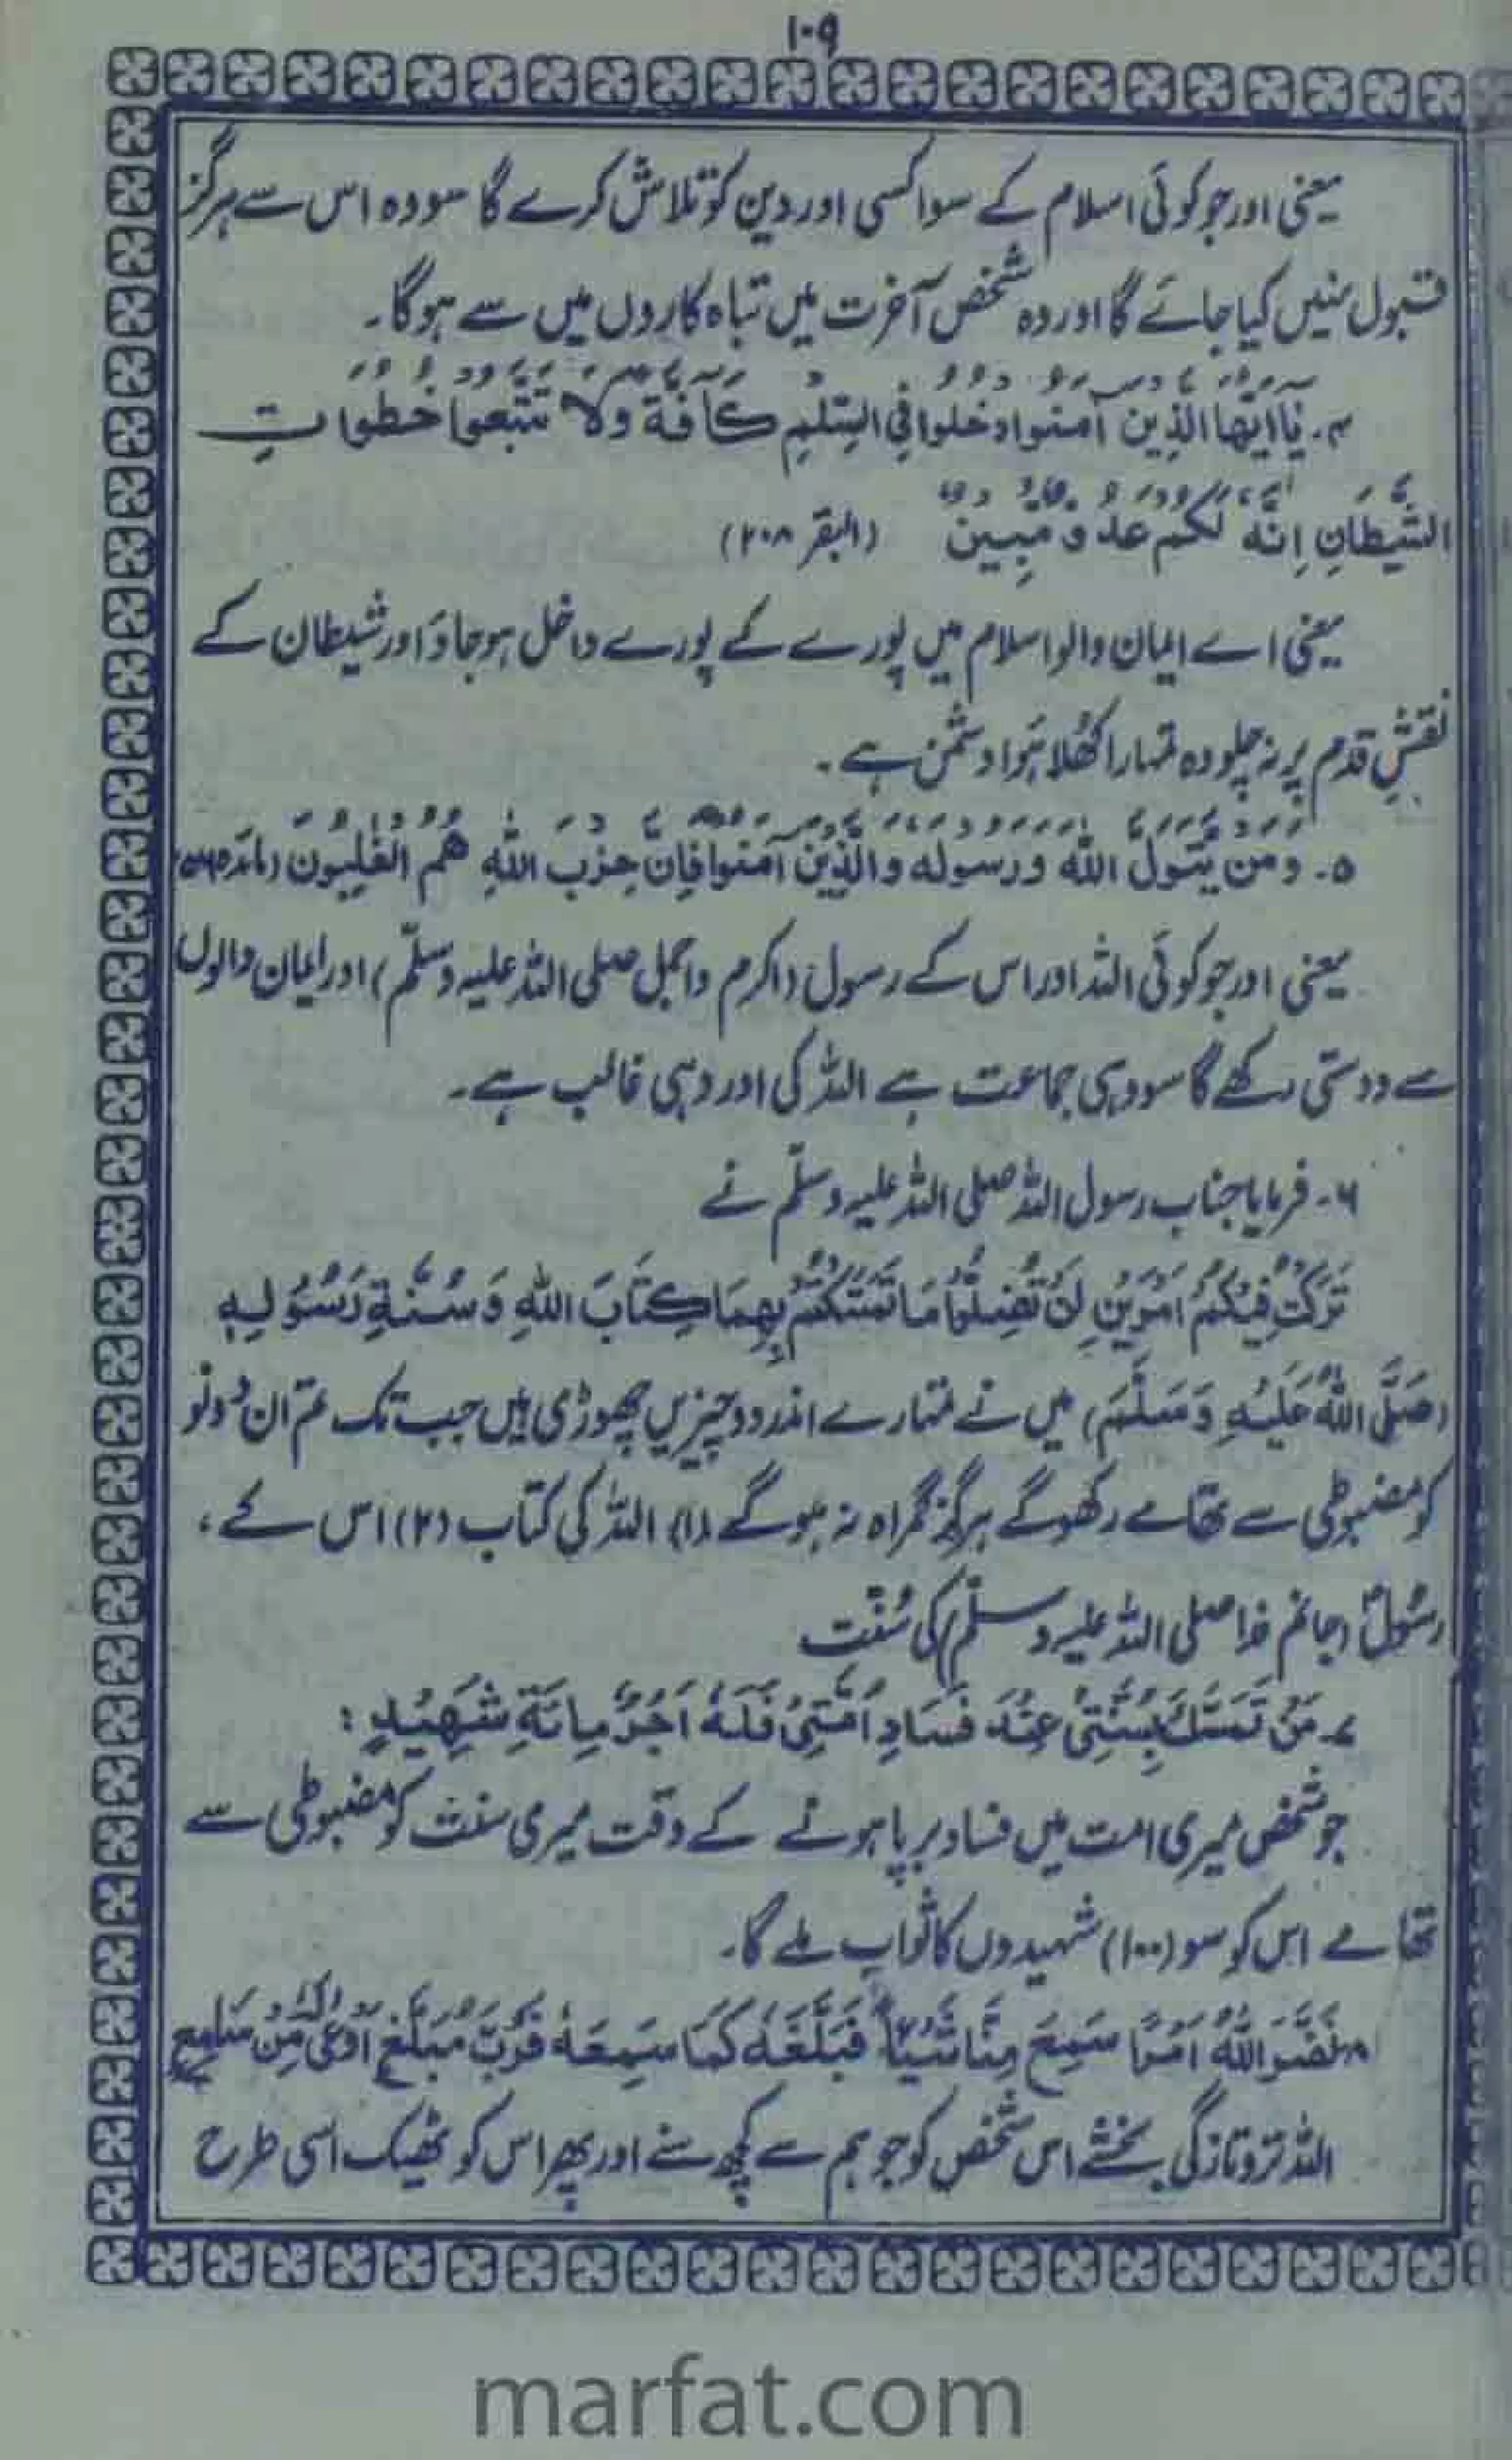 ۱۰۹
یعنی اور جو کوئی اسلام کے سوا کسی اور دین کو تلاش کرے گا سو وہ اس سے ہرگز
قبول نہیں کیا جائے گا اور وہ شخص آخرت میں تباہ کاروں میں سے ہوگا۔
۴۔ یَاۤاَیُّهَا الَّذِیْنَ آمَنُوا ادْخُلُوْا فِی السِّلْمِ کَآفَّةً وَلَا تَتَّبِعُوْا خُطُوَاتِ
الشَّیْطَانِ اِنَّهٗ لَکُمْ عَدُوٌّ مُّبِیْنٌ (البقر ۲۰۸)
یعنی اے ایمان والو اسلام میں پورے کے پورے داخل ہو جاؤ اور شیطان کے
نقشِ قدم پر نہ چلو وہ تمہارا کھُلا ہُوا دشمن ہے۔
۵۔ وَمَنْ یَّتَوَلَّ اللّٰهَ وَرَسُوْلَهٗ وَالَّذِیْنَ آمَنُوْا فَاِنَّ حِزْبَ اللّٰهِ هُمُ الْغٰلِبُوْنَ (مائدہ ۵۶)
یعنی اور جو کوئی اللہ اور اس کے رسول (اکرم و اجمل صلی اللہ علیہ وسلّم) اور ایمان والوں
سے دوستی رکھے گا سو وہی جماعت ہے اللہ کی اور وہی غالب ہے۔
۶۔ فرمایا جناب رسول اللہ صلی اللہ علیہ وسلّم نے
تَرَکْتُ فِیْکُمْ اَمْرَیْنِ لَنْ تَضِلُّوْا مَا تَمَسَّکْتُمْ بِهِمَا کِتَابَ اللّٰهِ وَسُنَّةِ رَسُوْلِهٖ
(صَلَّی اللّٰهُ عَلَیْهِ وَسَلَّمَ) میں نے تمہارے اندر دو چیزیں چھوڑی ہیں جب تک تم ان دُونو
کو مضبوطی سے تھامے رکھو گے ہرگز گمراہ نہ ہوگے (۱) اللہ کی کتاب (۲) اس کے،
رسُولؐ (جانم فدا صلی اللہ علیہ وسلّم) کی سُنّت
۷۔ مَنْ تَمَسَّکَ بِسُنَّتِیْ عِنْدَ فَسَادِ اُمَّتِیْ فَلَهٗ اَجْرُ مِائَةِ شَهِیْدٍ:
جو شخص میری امت میں فساد برپا ہونے کے وقت میری سنت کو مضبوطی سے
تھامے اس کو سو (۱۰۰) شہیدوں کا ثواب ملے گا۔
۸۔ نَضَّرَ اللّٰهُ اَمْرًا سَمِعَ مِنَّا شَیْئًا فَبَلَّغَهٗ کَمَا سَمِعَهٗ فَرُبَّ مُبَلَّغٍ اَوْعٰی مِنْ سَامِعٍ
اللہ تروتازگی بخشے اس شخص کو جو ہم سے کچھ سنے اور پھر اس کو ٹھیک اسی طرح
marfat.com